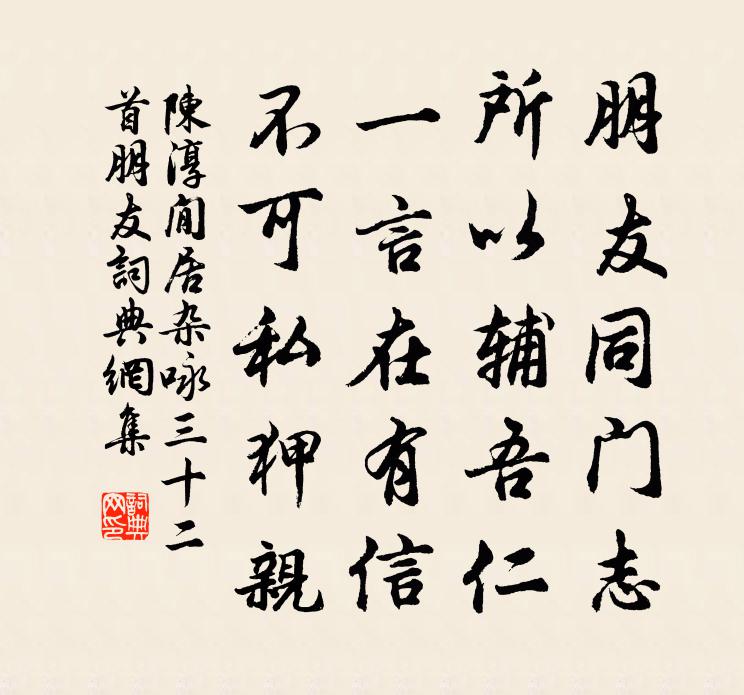 朋友同门志
所以辅吾仁
一言在有信
不可私狎親
陳淳閒居杂咏三十二
首朋友詞典網集
詞典
网印